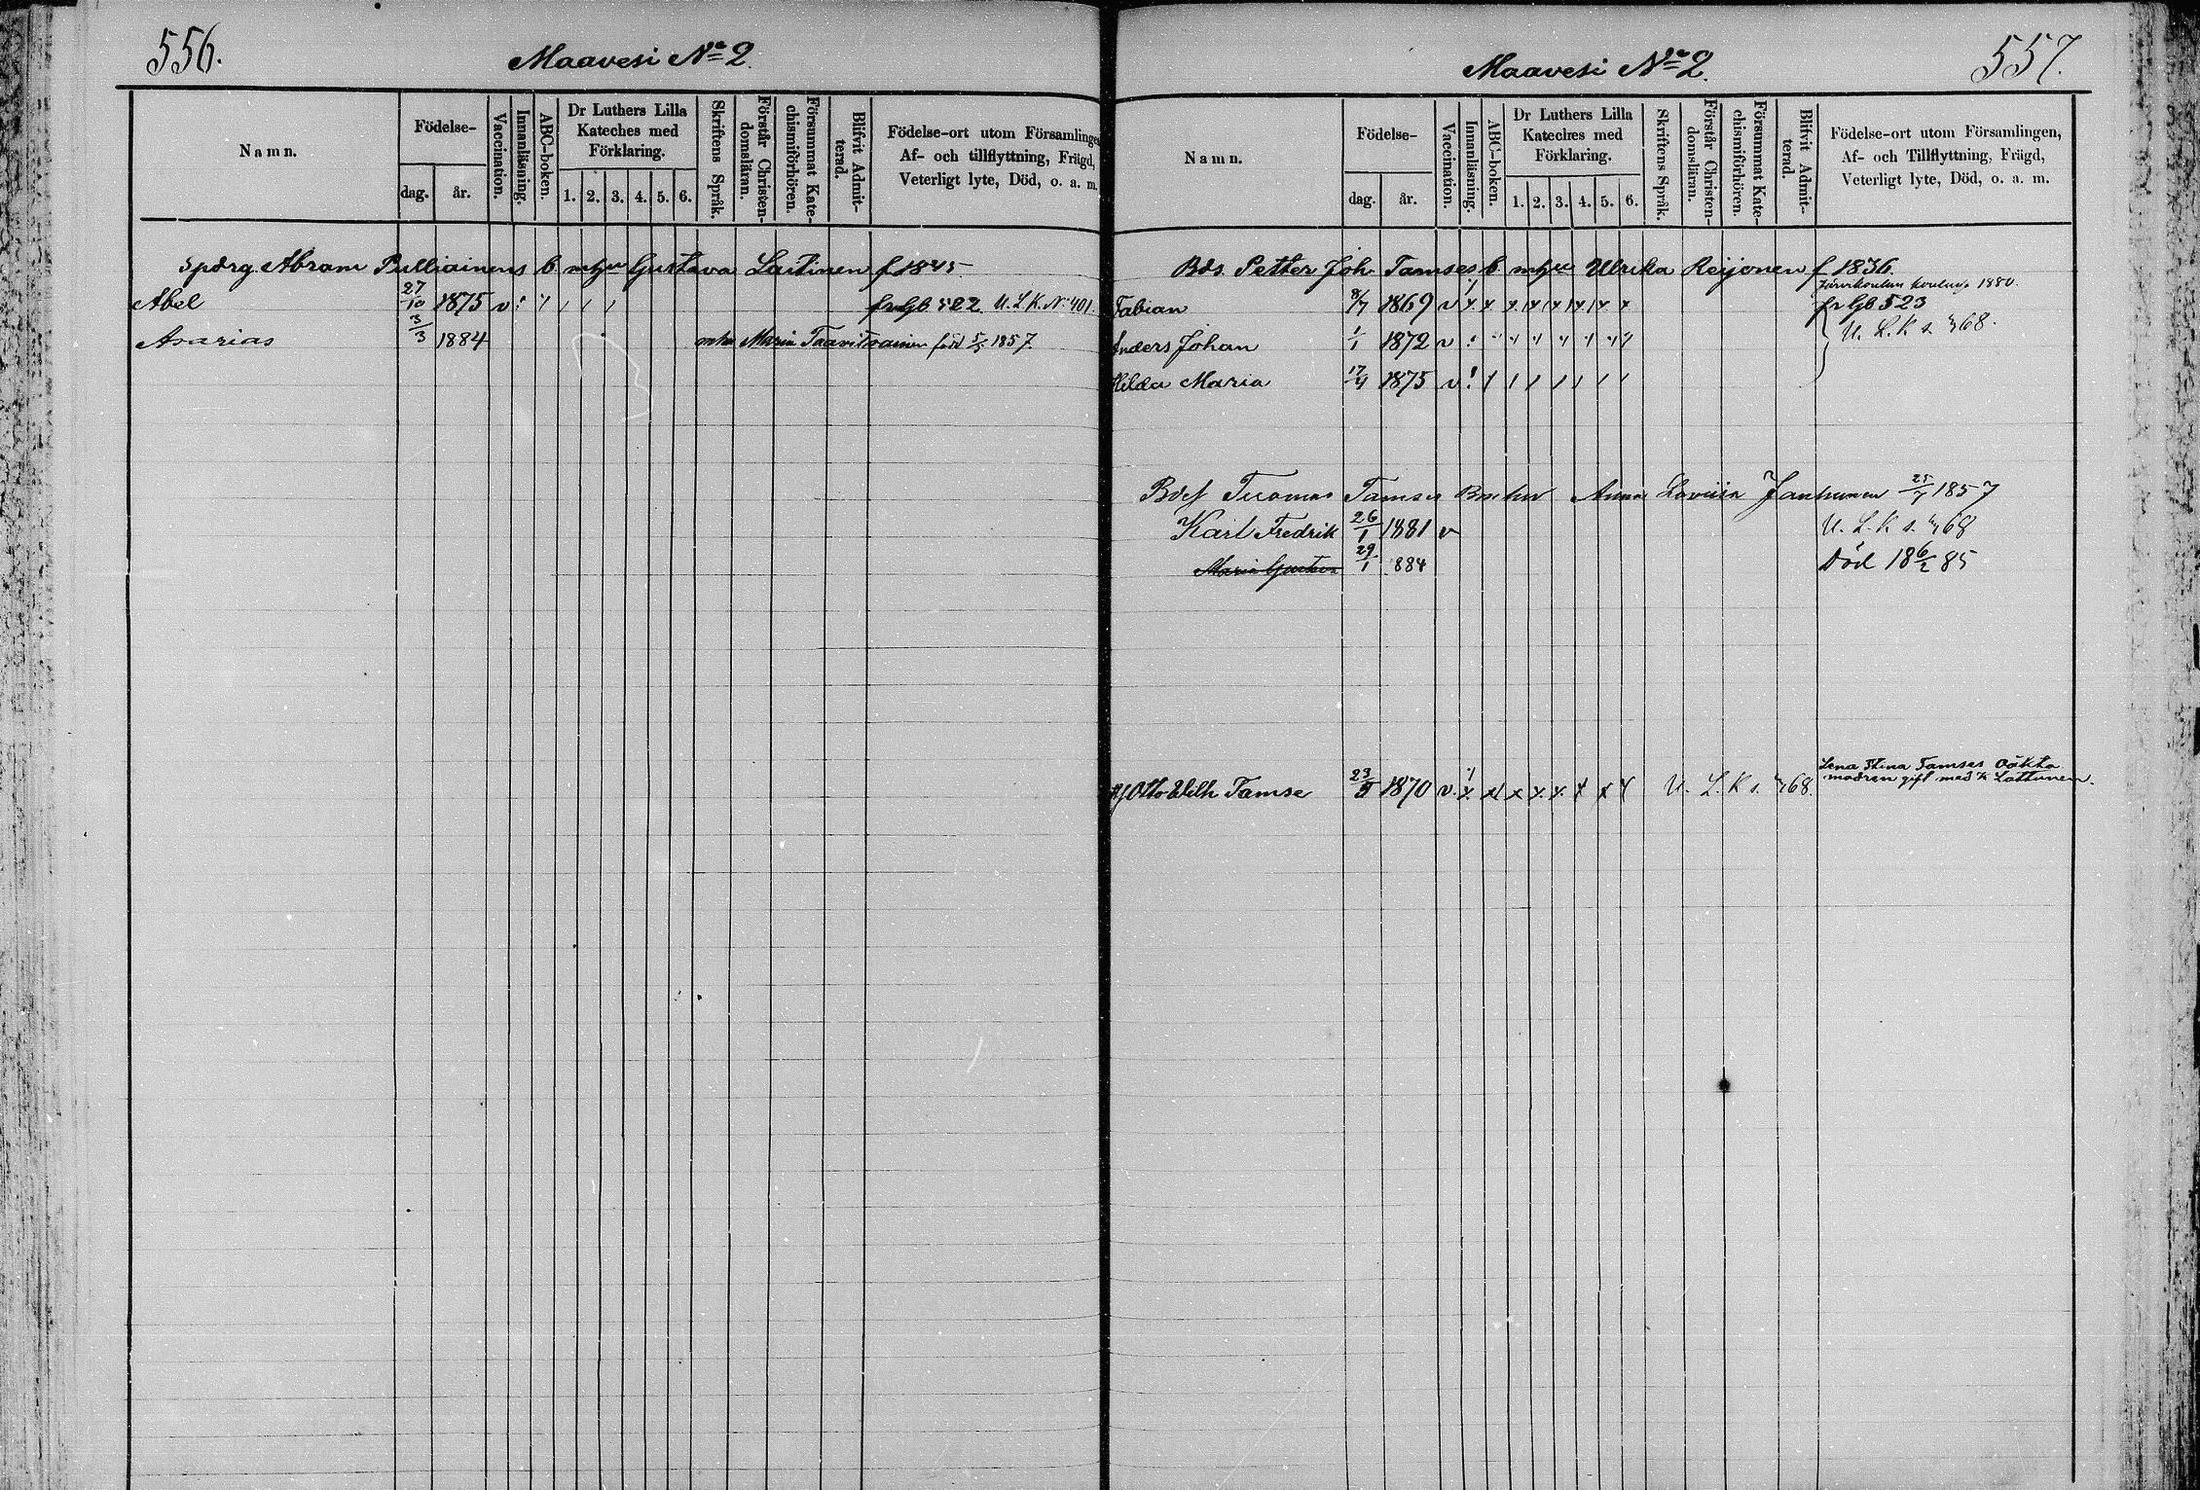 556.
Maavesi No 2.
Namn.
Födelse-
dag.
år.
Vaccination.
Innanläsning.
ABC-boken.
Dr Luthers Lilla
Kateches med
Förklaring.
1. 2. 3. 4. 5. 6.
Skriftens Språk.
Förstår Christen-
domsläran.
Försummat Kate-
chismiförhören.
Blifvit Admit-
terad.
Födelse-ort utom Församlingen
Af- och tillflyttning, Frägd,
Veterligt lyte, Död, o. a. m.
Abram Pulliainens b. m hu Gustava Laitinen f 1845
Abel 27/10 1875 v fr Lgb 522 U. L. K. No 401.
Asarias 3/3 1884 m hu Maria Taavitsainen född 1857.
557.
Maavesi No 2.
Namn.
Födelse-
dag.
år.
Vaccination.
Innanläsning.
ABC-boken.
Dr Luthers Lilla
Kateches med
Förklaring.
1. 2. 3. 4. 5. 6.
Skriftens Språk.
Förstår Christen-
domsläran.
Försummat Kate-
chismiförhören.
Blifvit Admit-
terad.
Födelse-ort utom Församlingen,
Af- och Tillflyttning, Frägd,
Veterligt lyte, Död, o. a. m.
Bds. Petter Joh Tamses b. m hu Ulrika Reijonen f 1836.
1880.
Fabian 8/7 1869 v x x x x x x x x fr Lgb 523
Anders Johan 1/1 1872 v U. L. K s. 468.
Hilda Maria 17/4 1875 v
Tuomas Tamses Barn hu Anna Lovisa Janhunen 25/7 1857
Karl Fredrik 26/1 1881 v U. L. K s. 468
Maria Gustava 29/1 884 Död 18 6/2 85
Otto Wilh Tamse 23/5 1870 v. U. L. K s. 468.
Lena Stina Tamses oäkta
modren gift med K Lattunen.